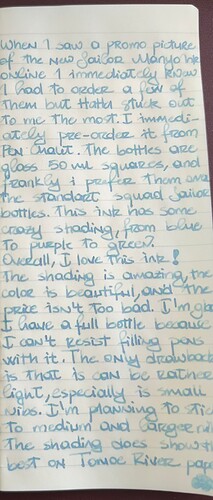 When I saw a promo picture
of the new Sailor Manyo ink
online I immediately knew
I had to order a few of
them but Haha stuck out
to me the most. I immedi-
ately pre-order it from
Pen Chalet. The bottles are
glass 50 ml squares, and
frankly I prefer them over
the standart squad Sailor
bottles. This ink has some
crazy shading, from blue
to purple to green.
Overall, I love this ink!
The shading is amazing, the
color is beautiful, and the
price isn't too bad. I'm gla
I have a full bottle because
I can't resist filling pens
with it. The only drawback
is that is can be rather
light, especially is small
nibs. I'm planning to stic
to medium and larger ni
The shading does show
best on Tomoe River pape